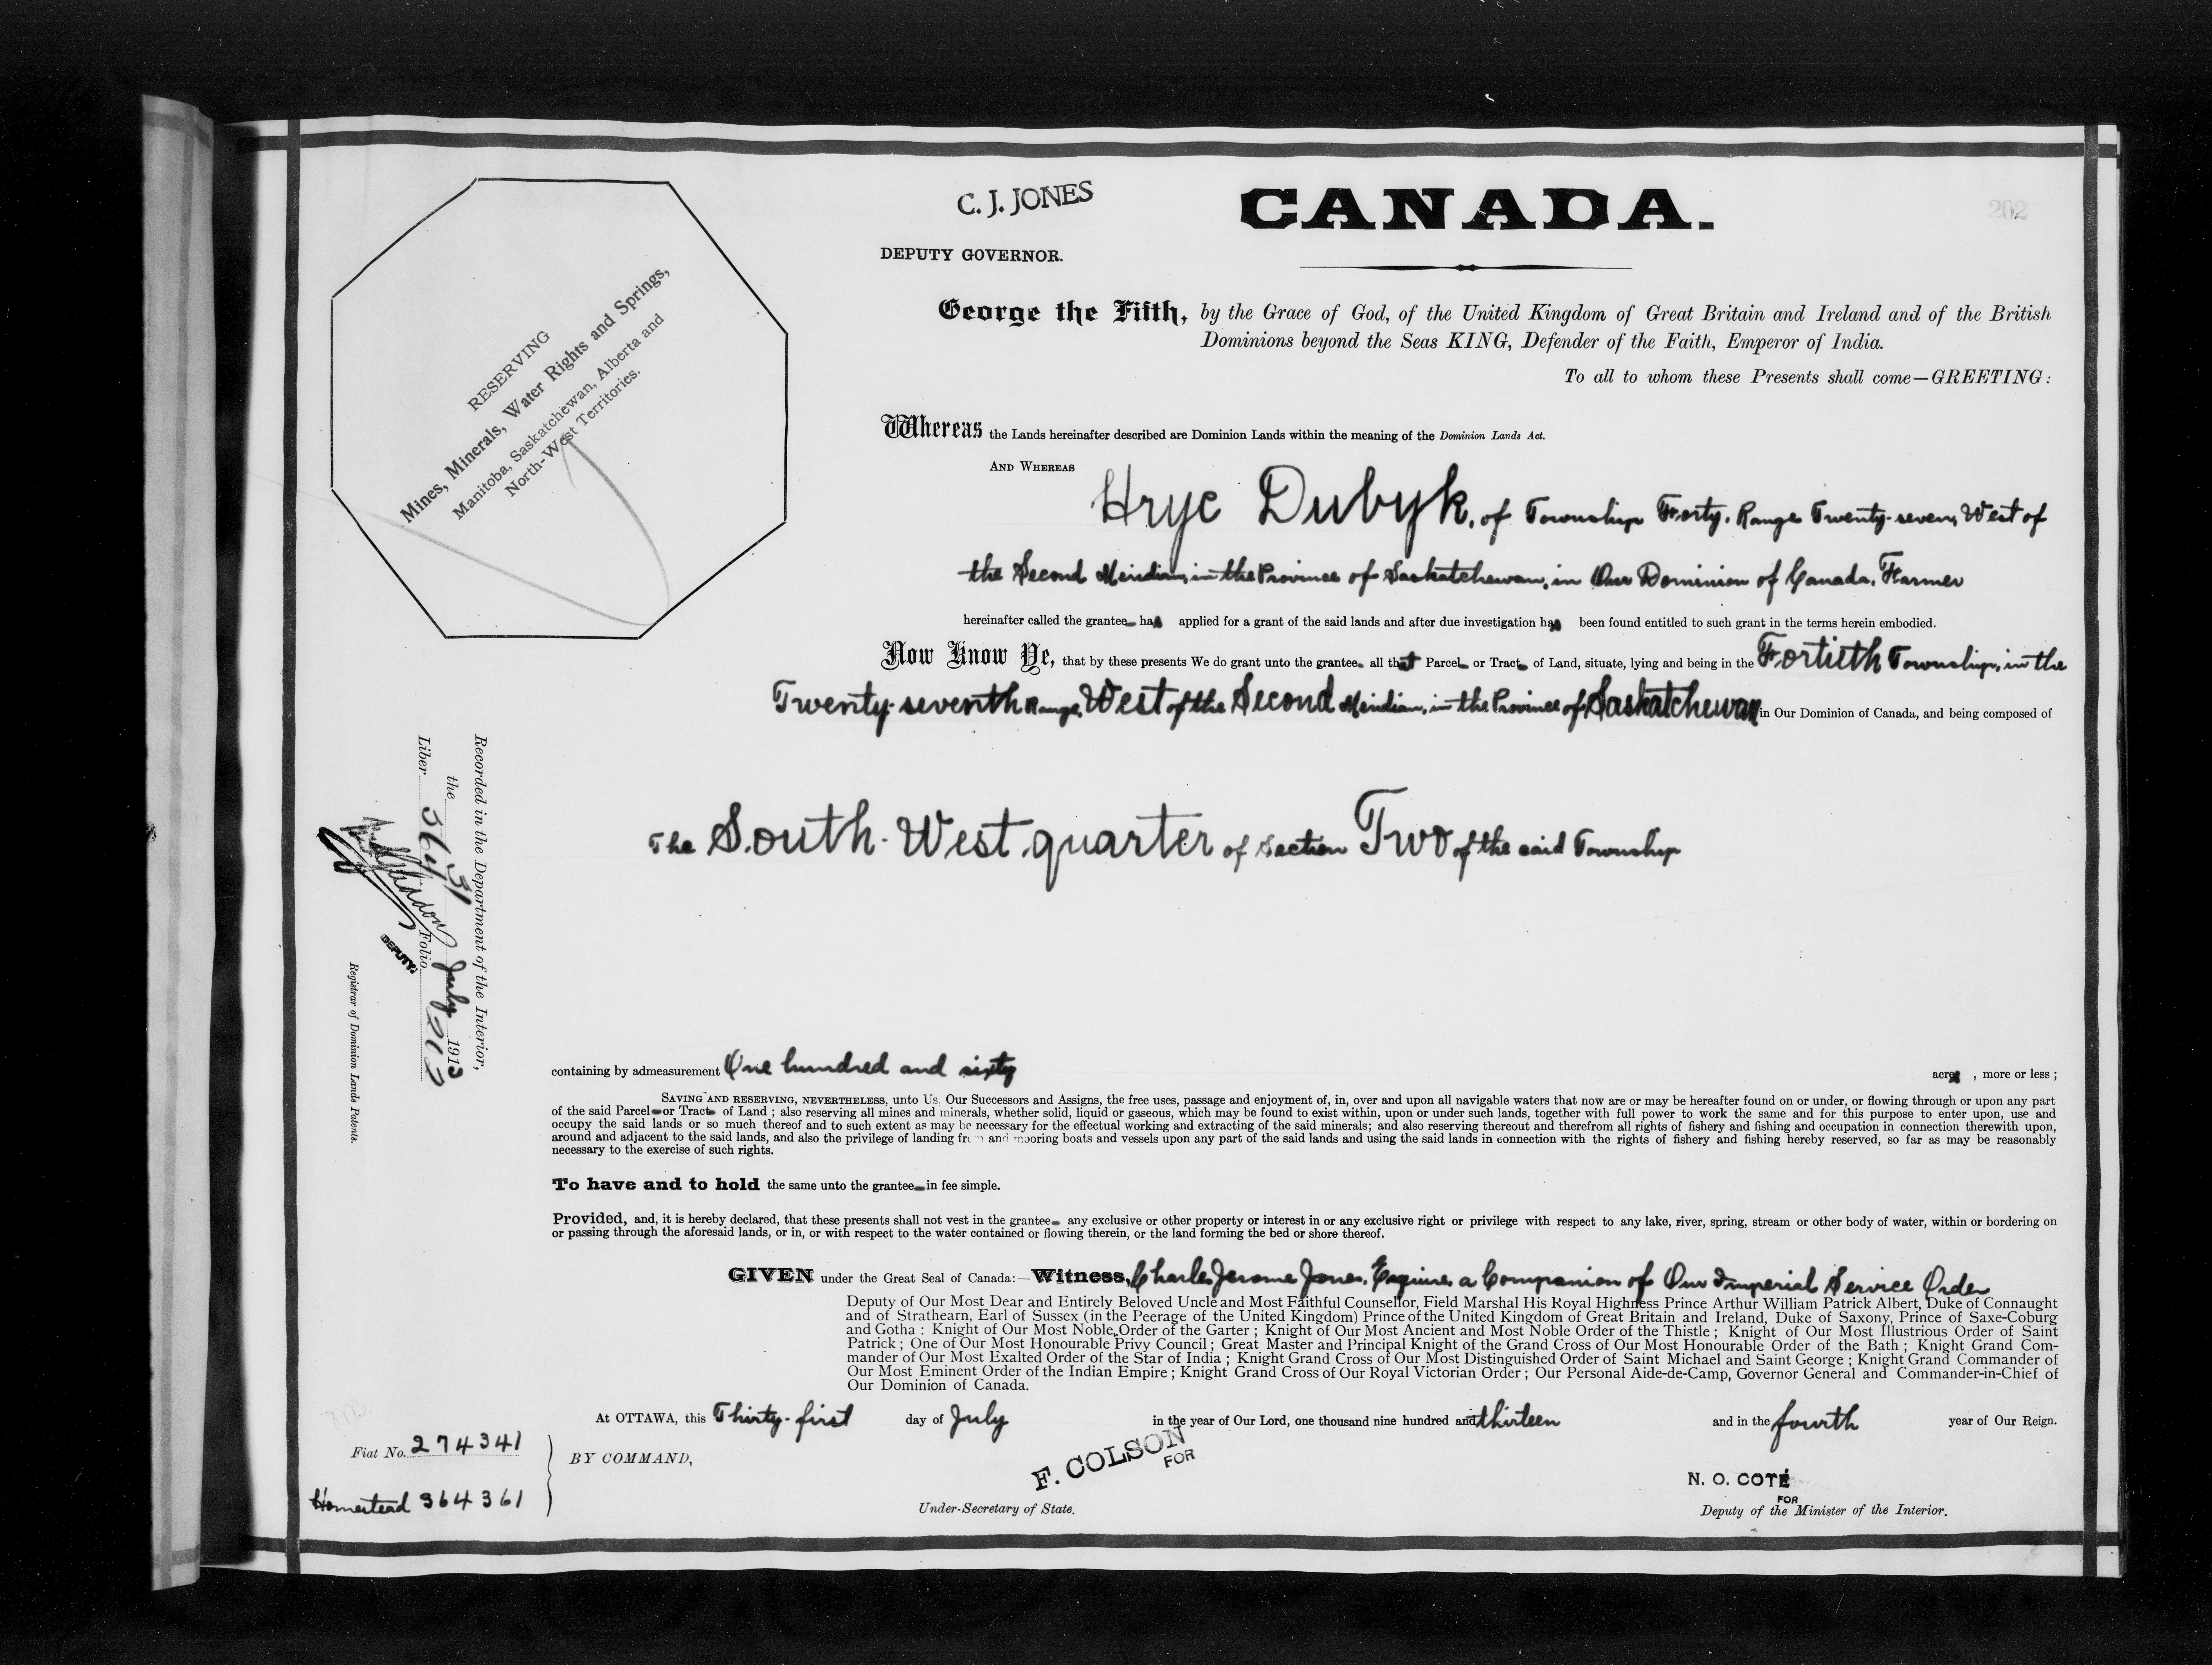 C. J. JONES
CANADA.
202
DEPUTY GOVERNOR.
RESERVING
Mines, Minerals, Water Rights and Springs,
Manitoba, Saskatchewan, Alberta and
North-West Territories.
George the Fifth, by the Grace of God, of the United Kingdom of Great Britain and Ireland and of the British
Dominions beyond the Seas KING, Defender of the Faith, Emperor of India.
To all to whom these Presents shall come—GREETING:
Whereas the Lands hereinafter described are Dominion Lands within the meaning of the Dominion Lands Act.
AND WHEREAS
Hryc Dubyk, of Township Forty, Range Twenty-seven, West of
the Second Meridian, in the Province of Saskatchewan, in Our Dominion of Canada, Farmer
hereinafter called the grantee has applied for a grant of the said lands and after due investigation has been found entitled to such grant in the terms herein embodied.
Now Know Ye, that by these presents We do grant unto the grantee all that Parcel or Tract of Land, situate, lying and being in the Fortieth Township, in the
Twenty-seventh Range, West of the Second Meridian, in the Province of Saskatchewan in Our Dominion of Canada, and being composed of
The South-West quarter of Section Two of the said Township
Recorded in the Department of the Interior,
the 31 July 1913
Liber 364 Folio 202
DEPUTY
Registrar of Dominion Lands Patents.
containing by admeasurement One hundred and sixty acres, more or less;
SAVING AND RESERVING, NEVERTHELESS, unto Us, Our Successors and Assigns, the free uses, passage and enjoyment of, in, over and upon all navigable waters that now are or may be hereafter found on or under, or flowing through or upon any part
of the said Parcel or Tract of Land; also reserving all mines and minerals, whether solid, liquid or gaseous, which may be found to exist within, upon or under such lands, together with full power to work the same and for this purpose to enter upon, use and
occupy the said lands or so much thereof and to such extent as may be necessary for the effectual working and extracting of the said minerals; and also reserving thereout and therefrom all rights of fishery and fishing and occupation in connection therewith upon,
around and adjacent to the said lands, and also the privilege of landing from and mooring boats and vessels upon any part of the said lands and using the said lands in connection with the rights of fishery and fishing hereby reserved, so far as may be reasonably
necessary to the exercise of such rights.
To have and to hold the same unto the grantee in fee simple.
Provided, and, it is hereby declared, that these presents shall not vest in the grantee any exclusive or other property or interest in or any exclusive right or privilege with respect to any lake, river, spring, stream or other body of water, within or bordering on
or passing through the aforesaid lands, or in, or with respect to the water contained or flowing therein, or the land forming the bed or shore thereof.
GIVEN under the Great Seal of Canada:—Witness, Charles Jerome Jones, Esquire, a Companion of Our Imperial Service Order
Deputy of Our Most Dear and Entirely Beloved Uncle and Most Faithful Counsellor, Field Marshal His Royal Highness Prince Arthur William Patrick Albert, Duke of Connaught
and of Strathearn, Earl of Sussex (in the Peerage of the United Kingdom) Prince of the United Kingdom of Great Britain and Ireland, Duke of Saxony, Prince of Saxe-Coburg
and Gotha: Knight of Our Most Noble Order of the Garter; Knight of Our Most Ancient and Most Noble Order of the Thistle; Knight of Our Most Illustrious Order of Saint
Patrick; One of Our Most Honourable Privy Council; Great Master and Principal Knight of the Grand Cross of Our Most Honourable Order of the Bath; Knight Grand Com-
mander of Our Most Exalted Order of the Star of India; Knight Grand Cross of Our Most Distinguished Order of Saint Michael and Saint George; Knight Grand Commander of
Our Most Eminent Order of the Indian Empire; Knight Grand Cross of Our Royal Victorian Order; Our Personal Aide-de-Camp, Governor General and Commander-in-Chief of
Our Dominion of Canada.
At OTTAWA, this Thirty-first day of July in the year of Our Lord, one thousand nine hundred and thirteen and in the fourth year of Our Reign.
Fiat No. 274341
BY COMMAND,
Homestead 364361
F. COLSON
FOR
Under-Secretary of State.
N. O. COTÉ
FOR
Deputy of the Minister of the Interior.